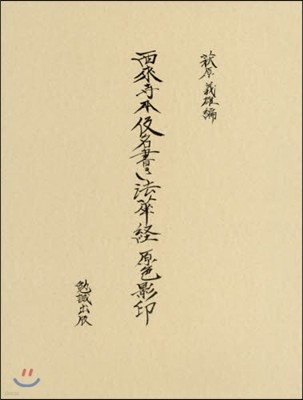 萩原義雄編
西来寺本仮名書き法華経 原色影印
勉誠出版